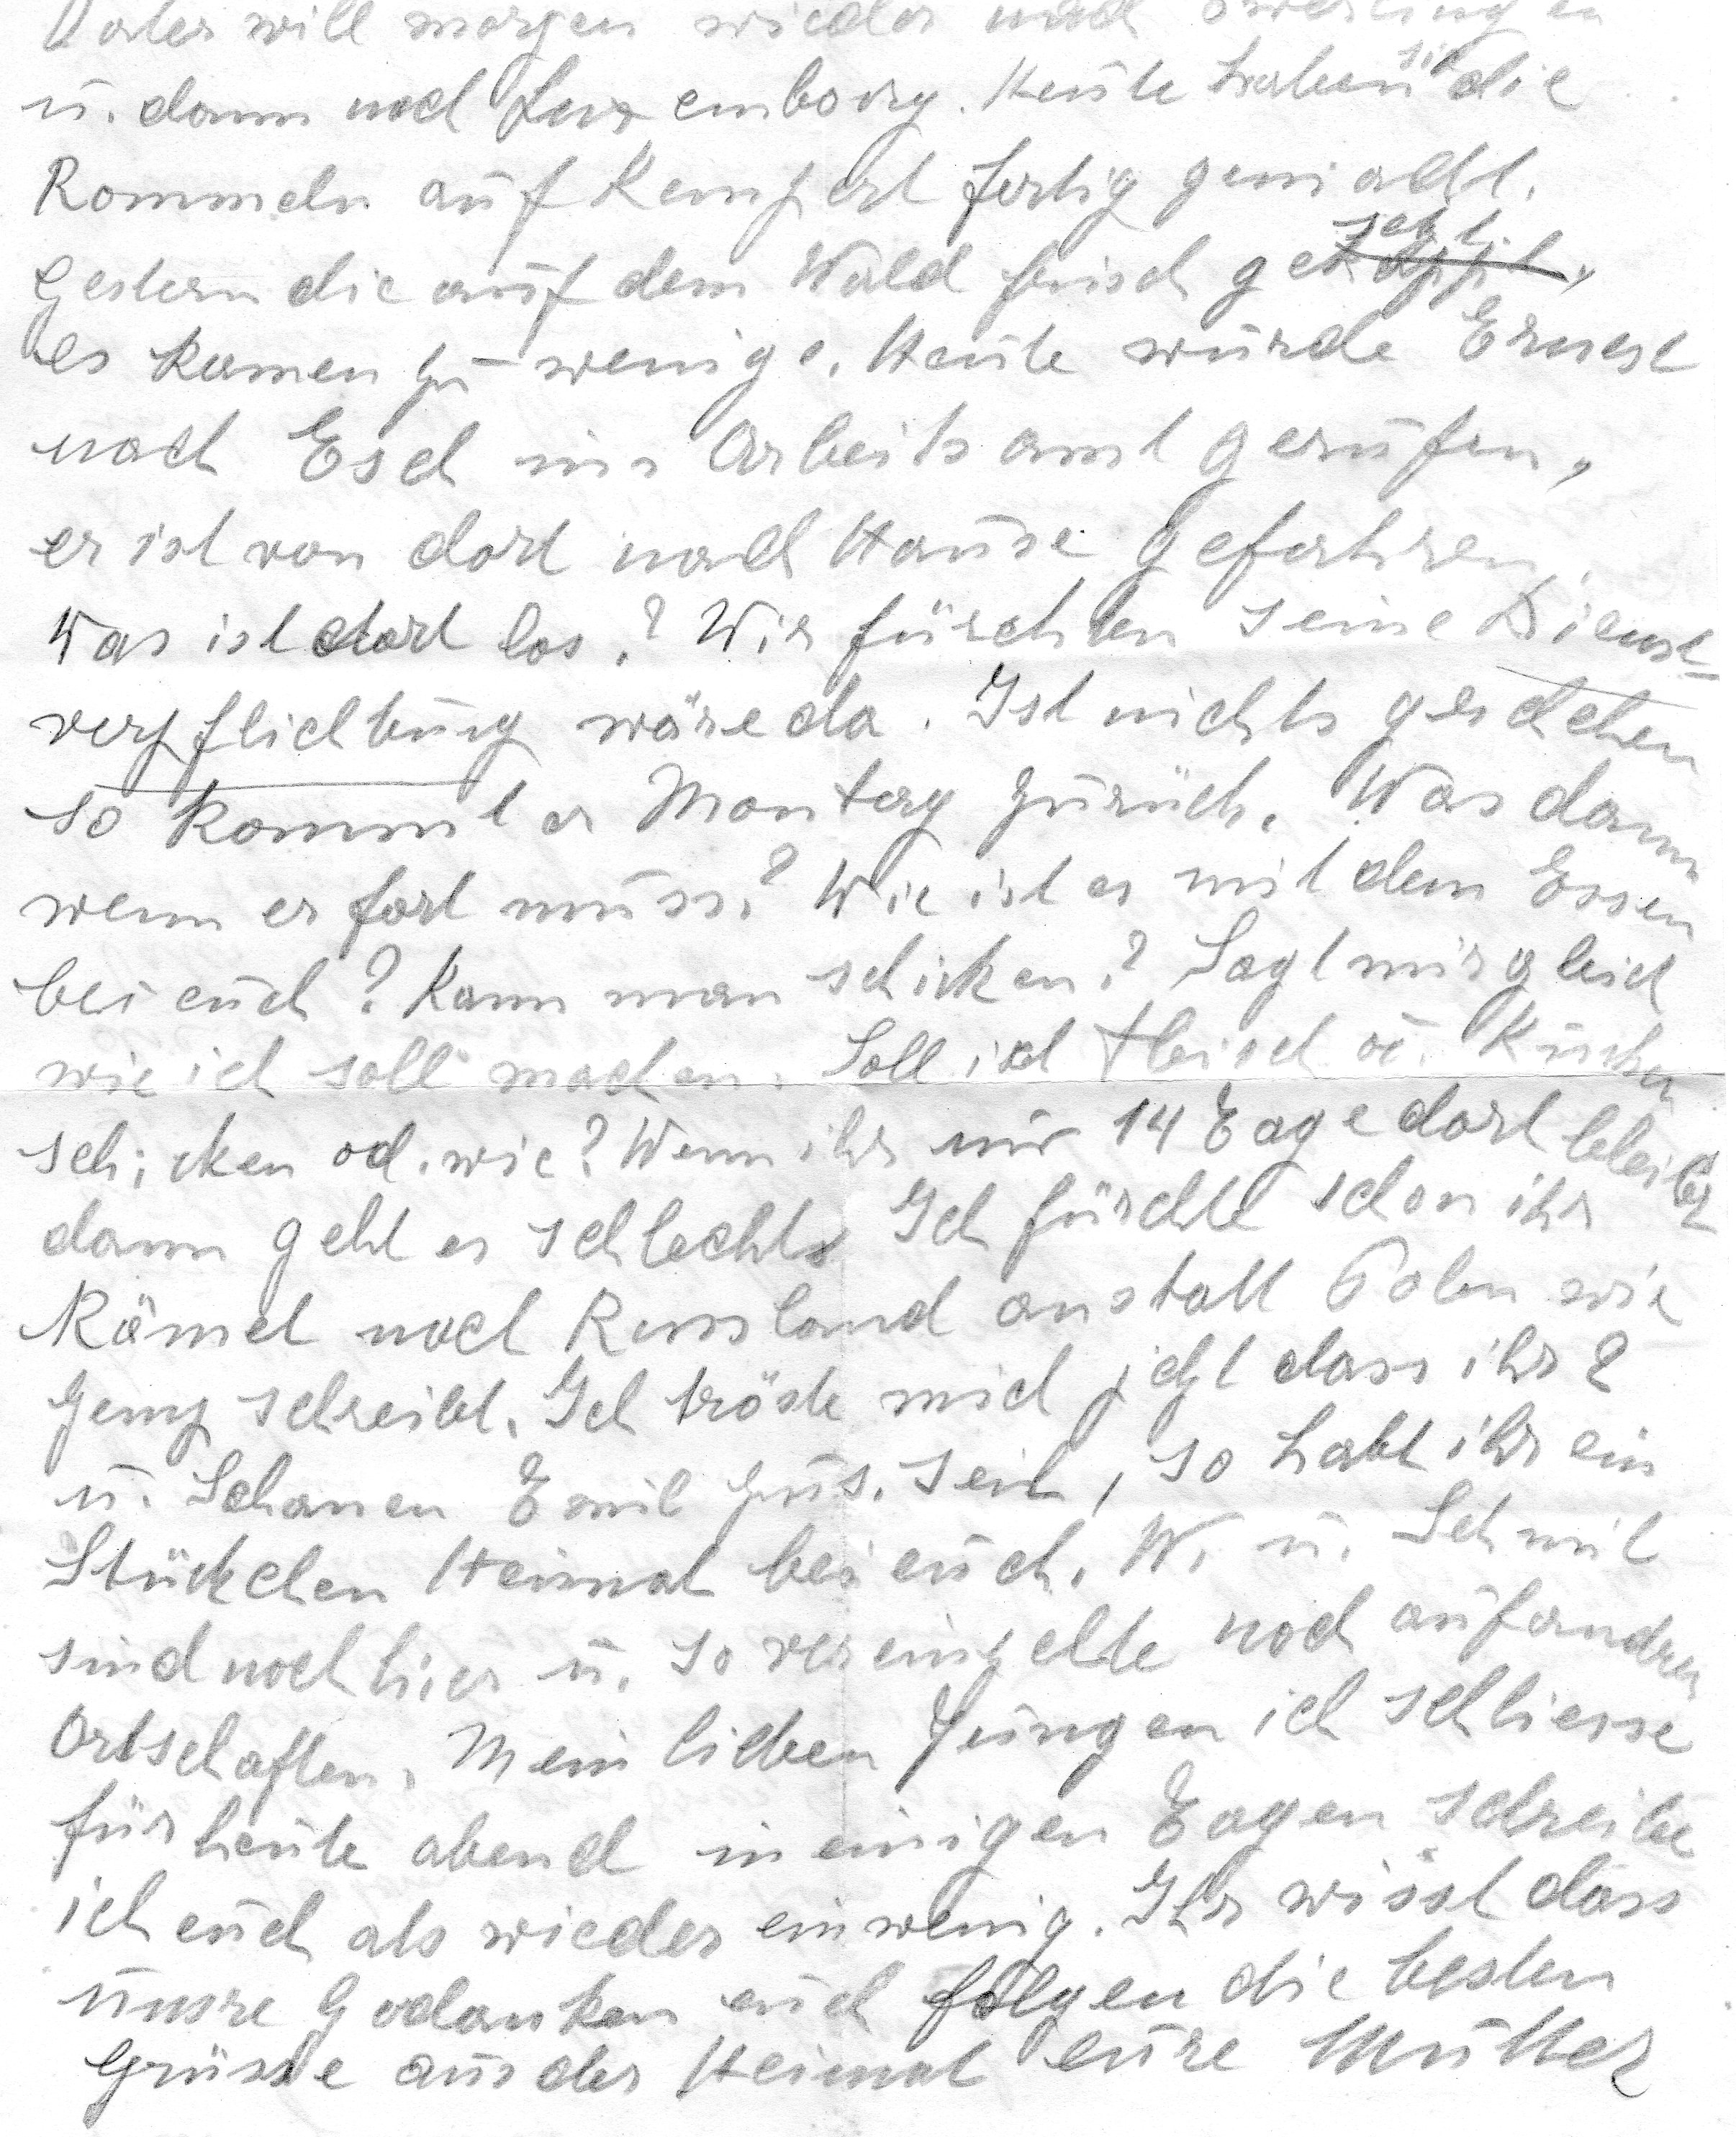 Vater will morgen wieder nach
u. dann nach Luxembourg. Heute haben sie die
Rommeln auf Kempert fertig gemacht.
Gestern die auf dem Wald frisch gesetzt,
es kamen zu wenige. Heute wurde Ernest
nach Esch ins Arbeitsamt gerufen,
er ist von dort nach Hause gefahren.
Was ist dort los? Wir fürchten seine Dienst-
verpflichtung wäre da. Ist nichts geschehen
so kommt er Montag zurück. Was dann
wenn er fort muss? Wie ist es mit dem Essen
bei euch? Kann man schicken? Sagt mir gleich
wie ich soll machen. Soll ich Fleisch u. Kuchen
schicken od. wie? Wenn ihr nur 14 Tage dort bleibt
dann geht es schlecht. Ich fürchte schon ihr
kämet nach Russland anstatt Polen wie
Jemp schreibt. Ich tröste mich jetzt dass ihr 2
u. Schanen Emil zus. seid, so habt ihr ein
Stückchen Heimat bei euch. W. u. Schmit
sind noch hier u. so vereinzelte noch auf andren
Ortschaften. Mein lieben Jungen ich schliesse
für heute abend in einigen Tagen schreibe
ich euch als wieder ein wenig. Ihr wisst dass
unsre Gedanken euch folgen die besten
Grüsse aus der Heimat eure Mutter